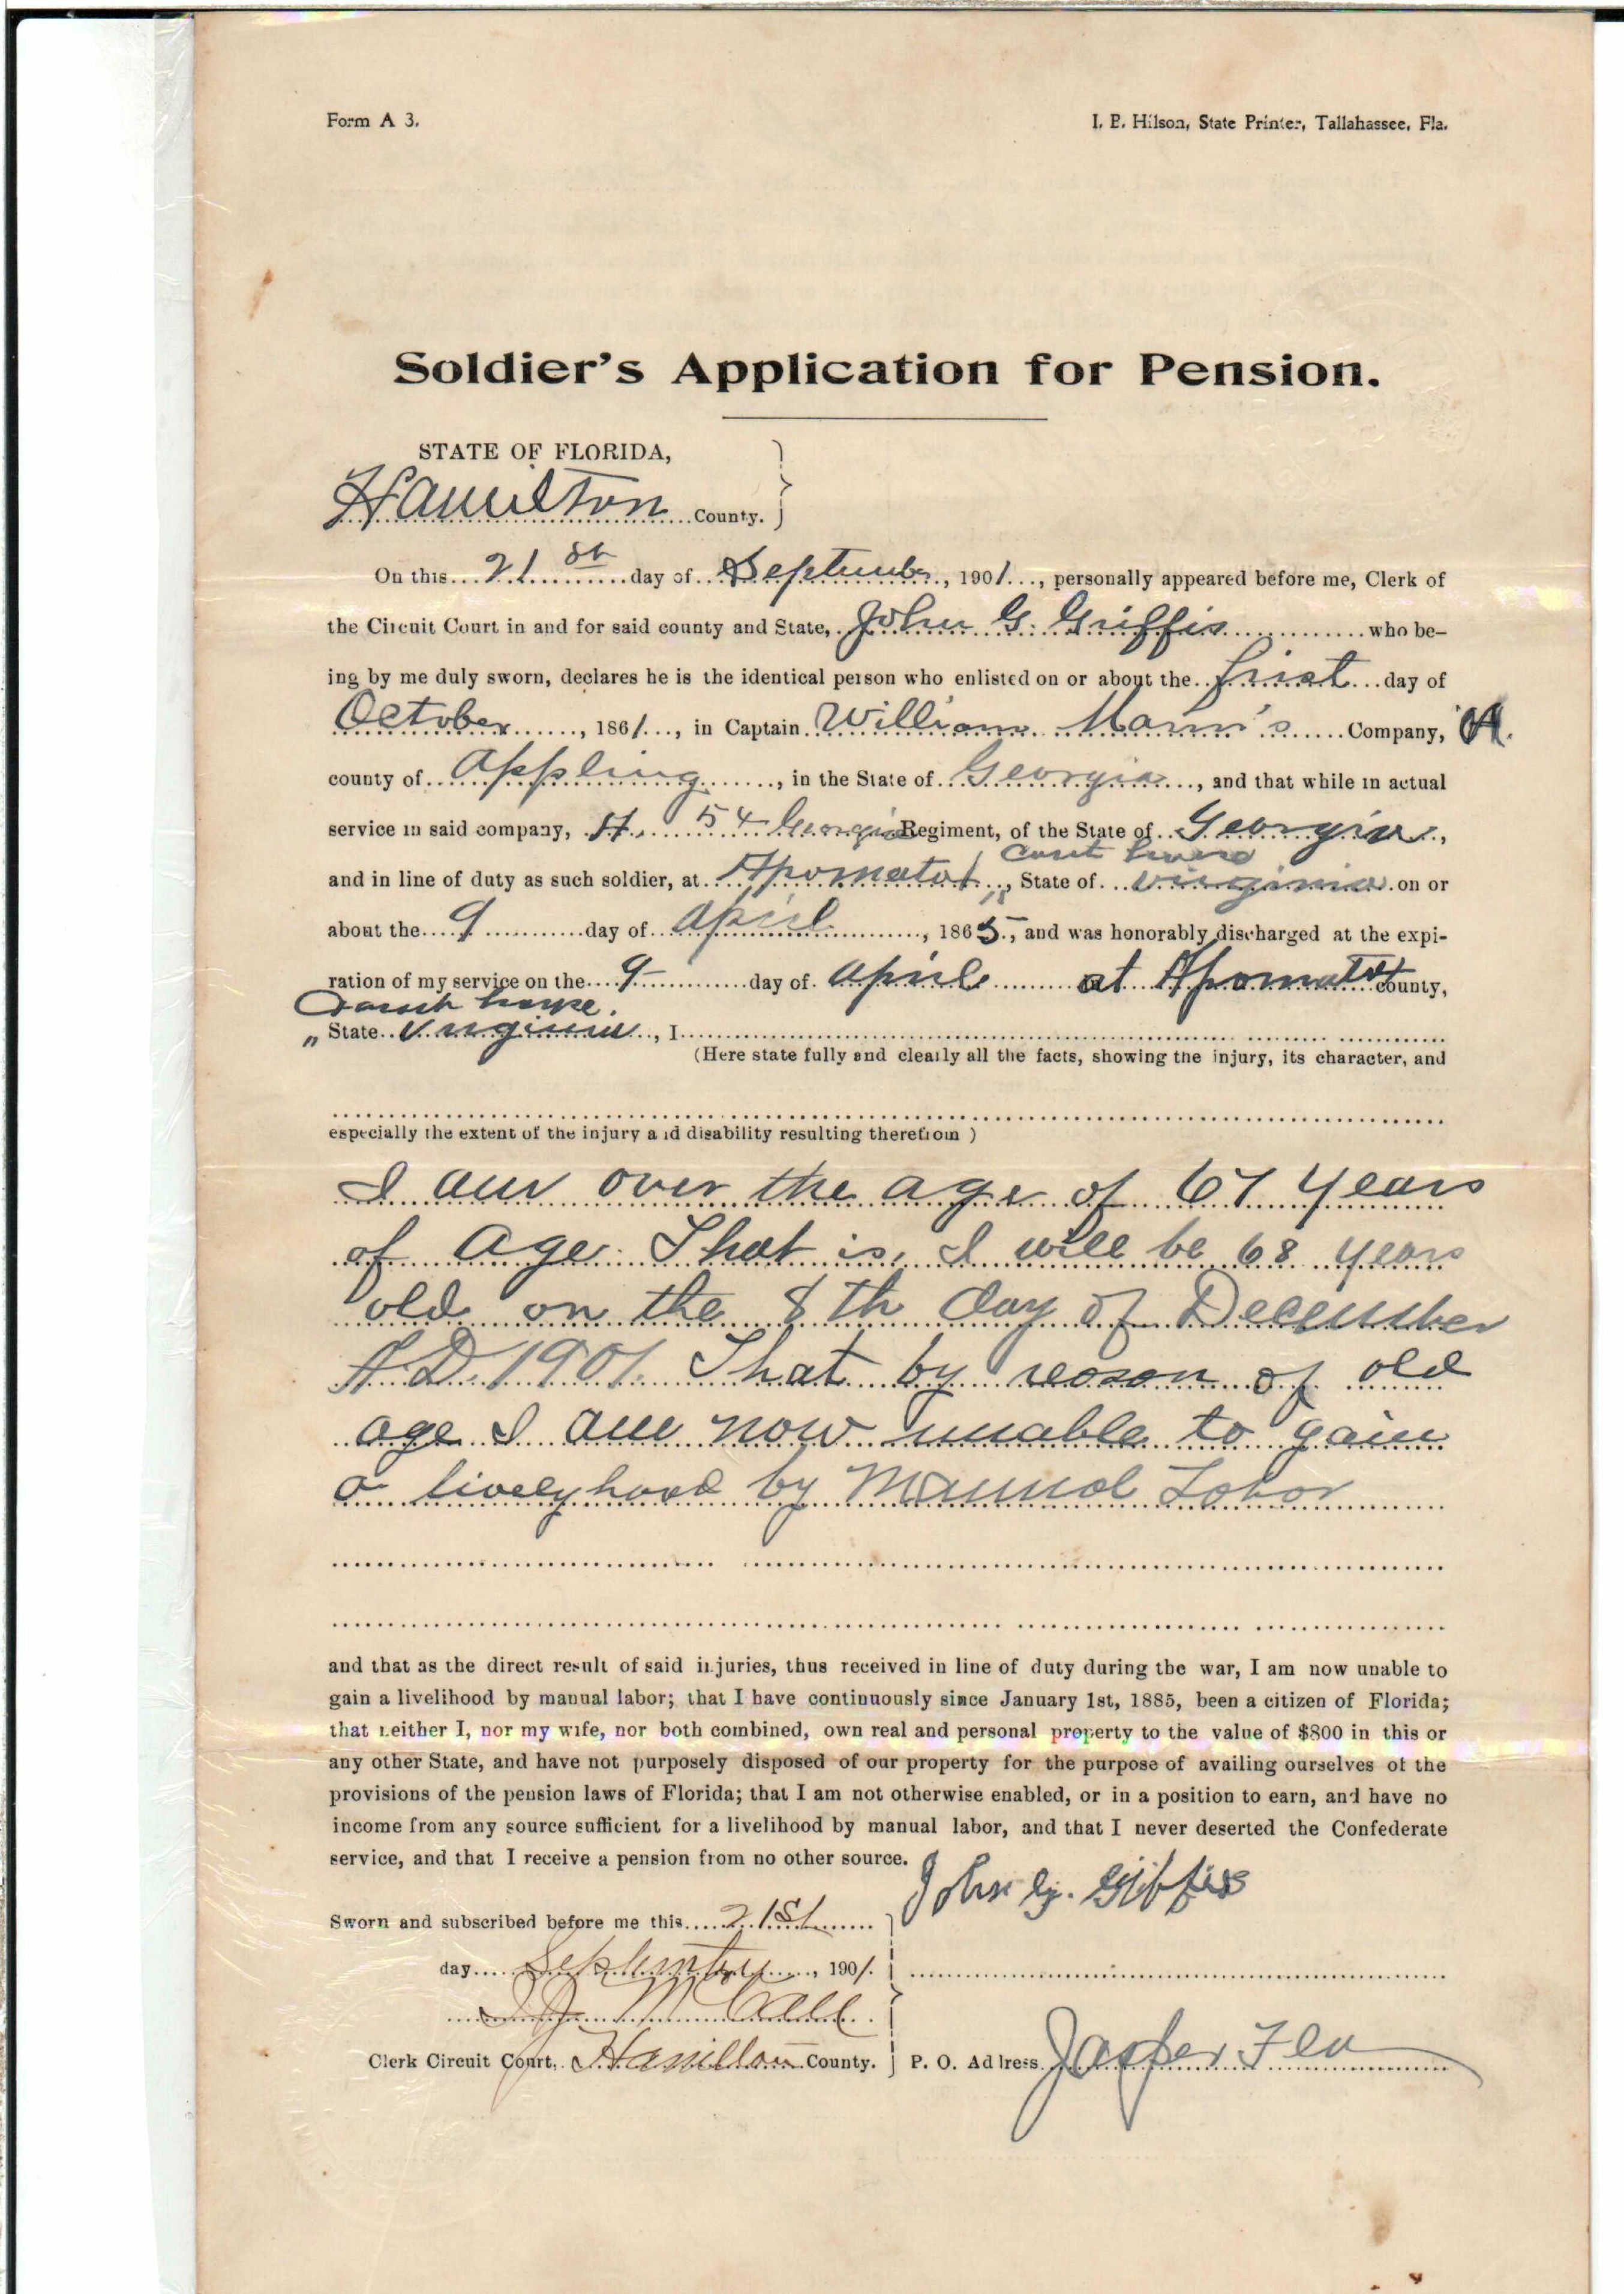 Form A 3.
I. B. Hilson, State Printer, Tallahassee, Fla.
Soldier's Application for Pension.
STATE OF FLORIDA,
Hamilton County.
On this 21st day of September, 1901, personally appeared before me, Clerk of
the Circuit Court in and for said county and State, John G. Griffis who be-
ing by me duly sworn, declares he is the identical person who enlisted on or about the first day of
October, 1861, in Captain William Mann's Company,
county of Appling, in the State of Georgia, and that while in actual
service in said company, H. 54 Georgia Regiment, of the State of Georgia,
Court house
and in line of duty as such soldier, at Apomatox, State of virginia on or
about the 9 day of April, 1865, and was honorably discharged at the expi-
ration of my service on the 9 day of April at Apomatox County,
Court house.
" State Virginia, I
(Here state fully and clearly all the facts, showing the injury, its character, and
especially the extent of the injury and disability resulting therefrom )
I am over the age of 67 years
of age. That is, I will be 68 years
old on the 8th day of December
A.D. 1901. That by reason of old
age I am now unable to gain
a livelyhood by Manual Labor
and that as the direct result of said injuries, thus received in line of duty during the war, I am now unable to
gain a livelihood by manual labor; that I have continuously since January 1st, 1885, been a citizen of Florida;
that neither I, nor my wife, nor both combined, own real and personal property to the value of $800 in this or
any other State, and have not purposely disposed of our property for the purpose of availing ourselves of the
provisions of the pension laws of Florida; that I am not otherwise enabled, or in a position to earn, and have no
income from any source sufficient for a livelihood by manual labor, and that I never deserted the Confederate
service, and that I receive a pension from no other source.
John G. Griffis
Sworn and subscribed before me this 21st
day September, 1901.
McCall
Clerk Circuit Court, Hamilton County.
P. O. Address Jasper Fla